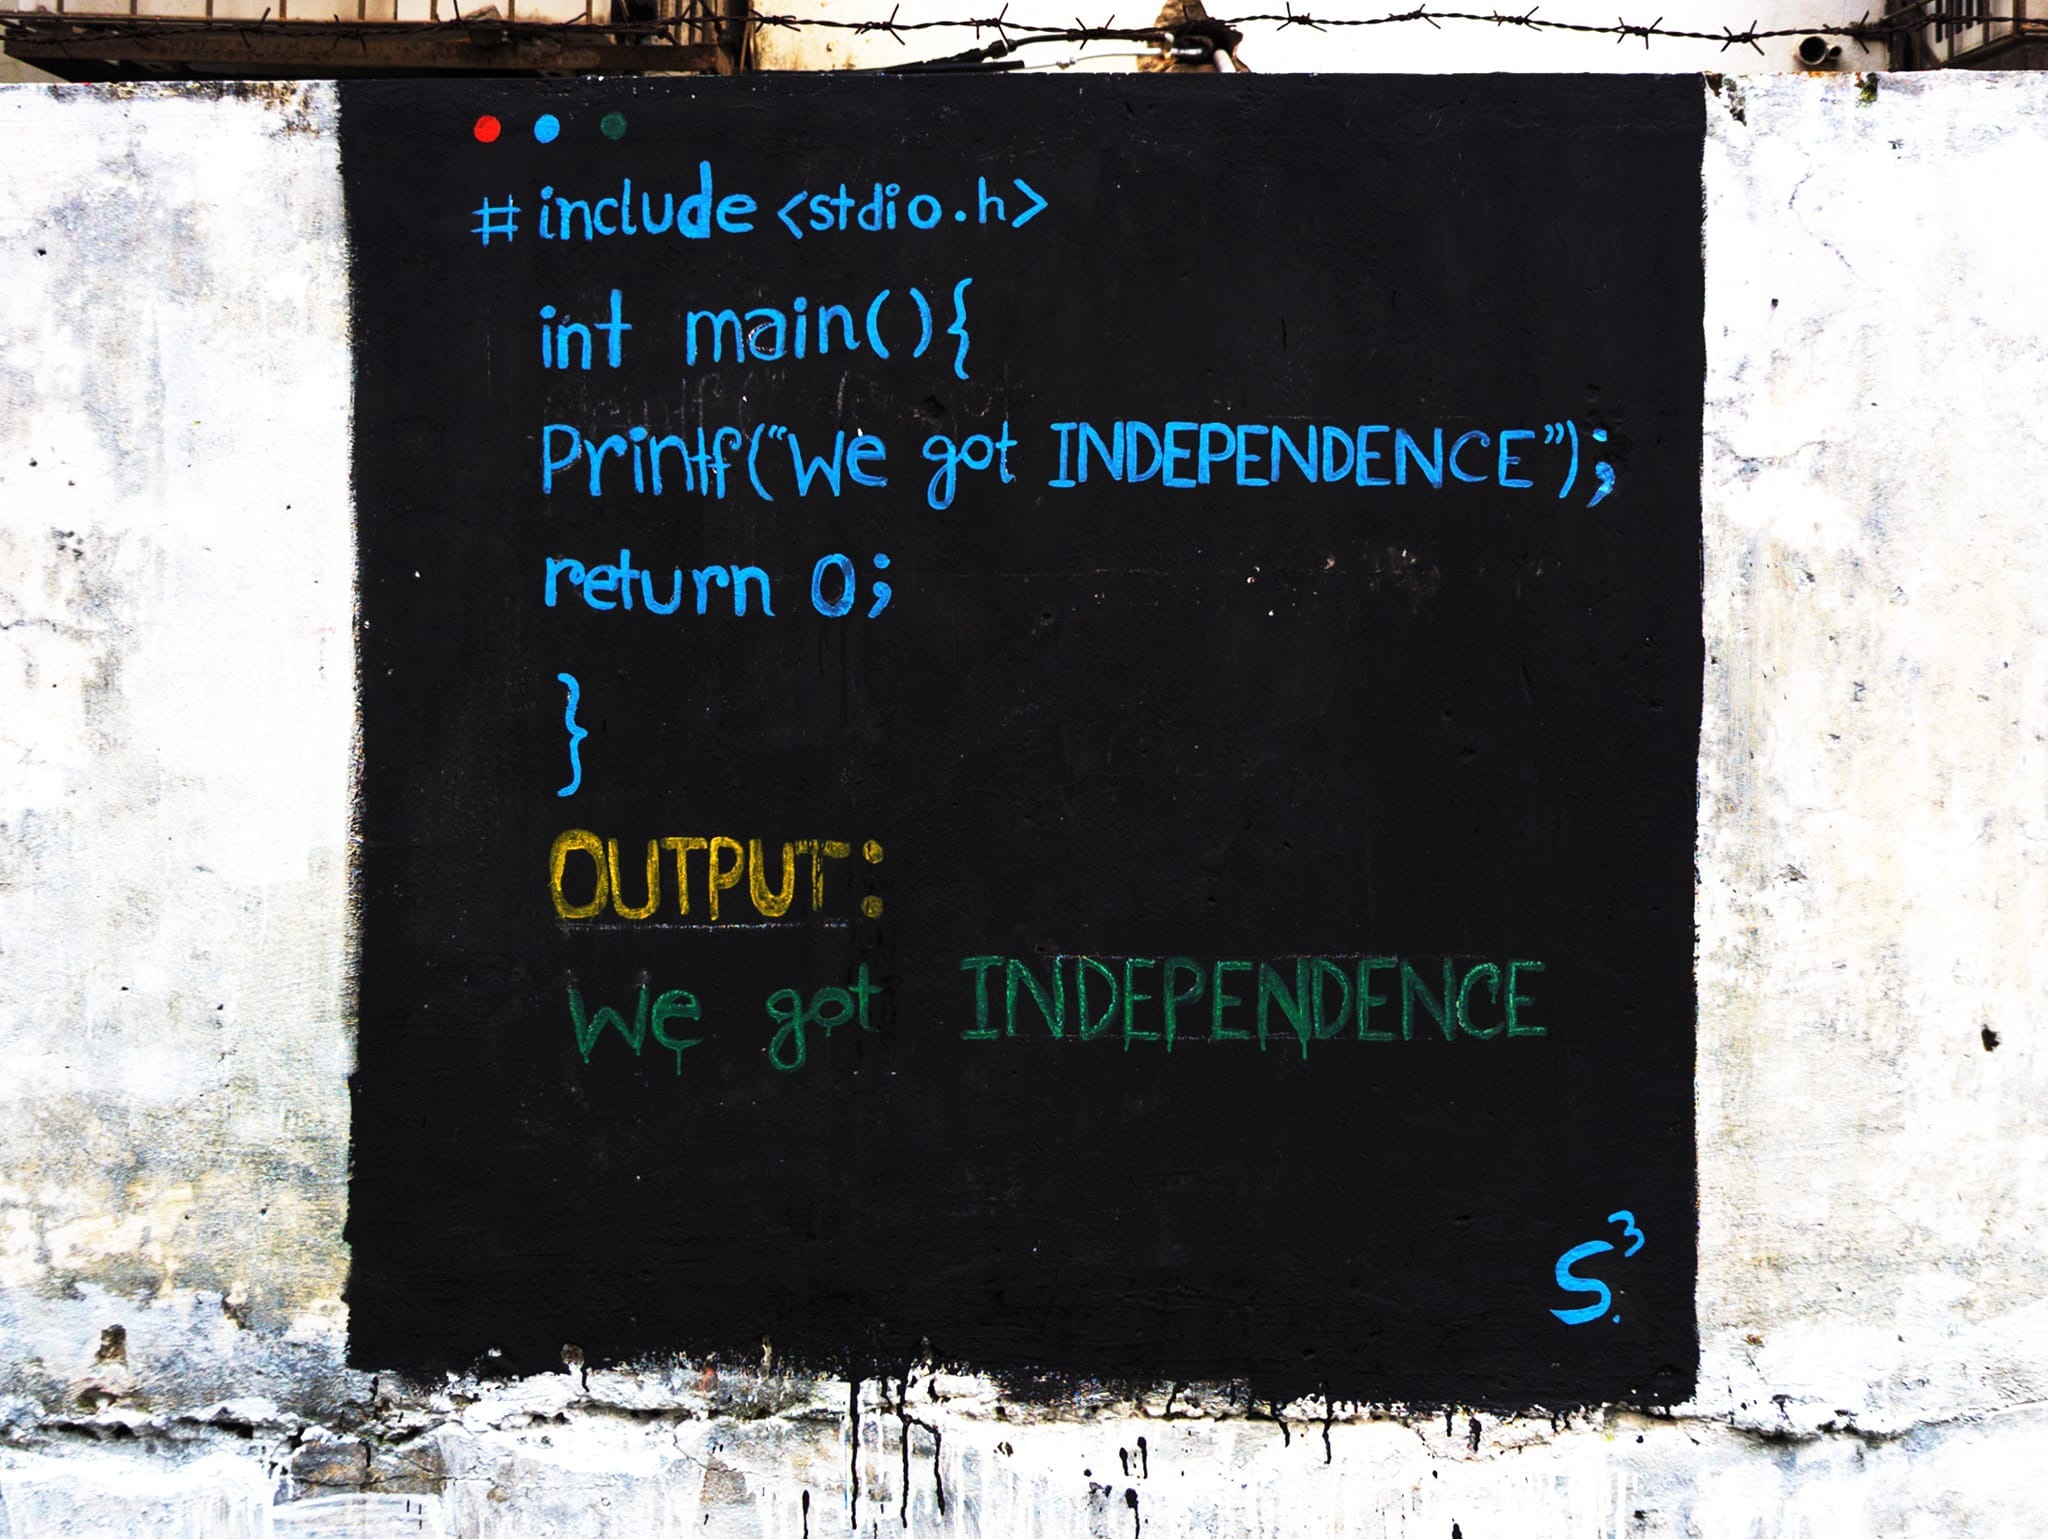 #include <stdio.h>
int main(){
Printf(“We got INDEPENDENCE”);
return 0;
}
OUTPUT:
We got INDEPENDENCE
S³.